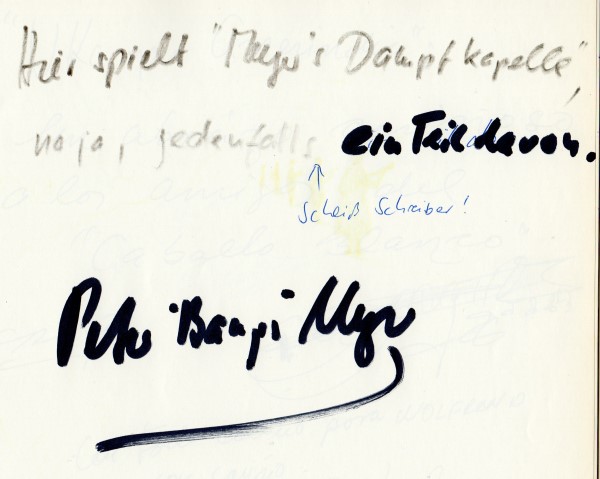 Hier spielt "Meyer's Dampfkapelle",
na ja, jedenfalls ein Teil davon.
↑
Scheiß Schreiber!
Peter "Banjo" Meyer